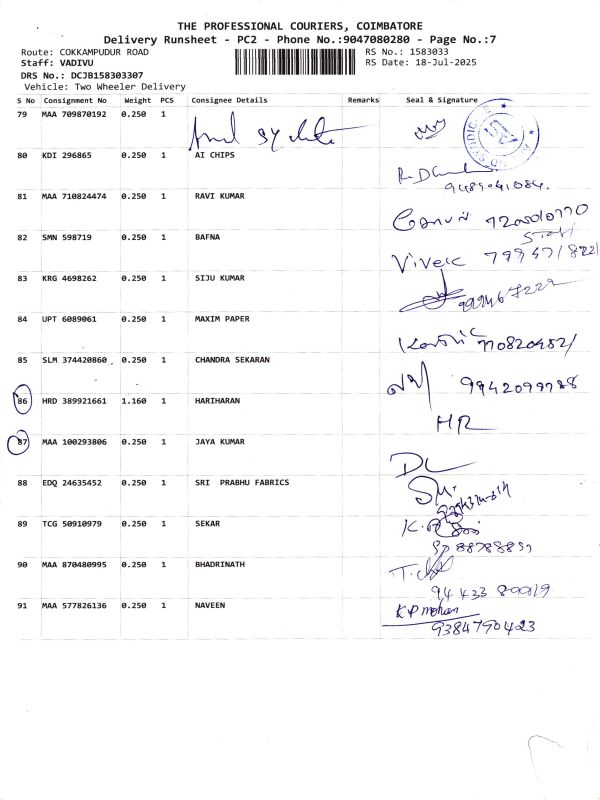 THE PROFESSIONAL COURIERS, COIMBATORE
Delivery Runsheet - PC2 - Phone No.:9047080280 - Page No.:7
Route: COKKAMPUDUR ROAD RS No.: 1583033
Staff: VADIVU RS Date: 18-Jul-2025
DRS No.: DCJB158303307
Vehicle: Two Wheeler Delivery
S No Consignment No Weight PCS Consignee Details Remarks Seal & Signature
79 MAA 709870192 0.250 1
80 KDI 296865 0.250 1 AI CHIPS
81 MAA 710824474 0.250 1 RAVI KUMAR
82 SMN 598719 0.250 1 BAFNA
Vivek
83 KRG 4698262 0.250 1 SIJU KUMAR
84 UPT 6089061 0.250 1 MAXIM PAPER
85 SLM 374420860 0.250 1 CHANDRA SEKARAN
9942099988
86 HRD 389921661 1.160 1 HARIHARAN
HR
87 MAA 100293806 0.250 1 JAYA KUMAR
DL
88 EDQ 24635452 0.250 1 SRI PRABHU FABRICS
89 TCG 50910979 0.250 1 SEKAR
90 MAA 870480995 0.250 1 BHADRINATH
91 MAA 577826136 0.250 1 NAVEEN
K P mohan
9384790423